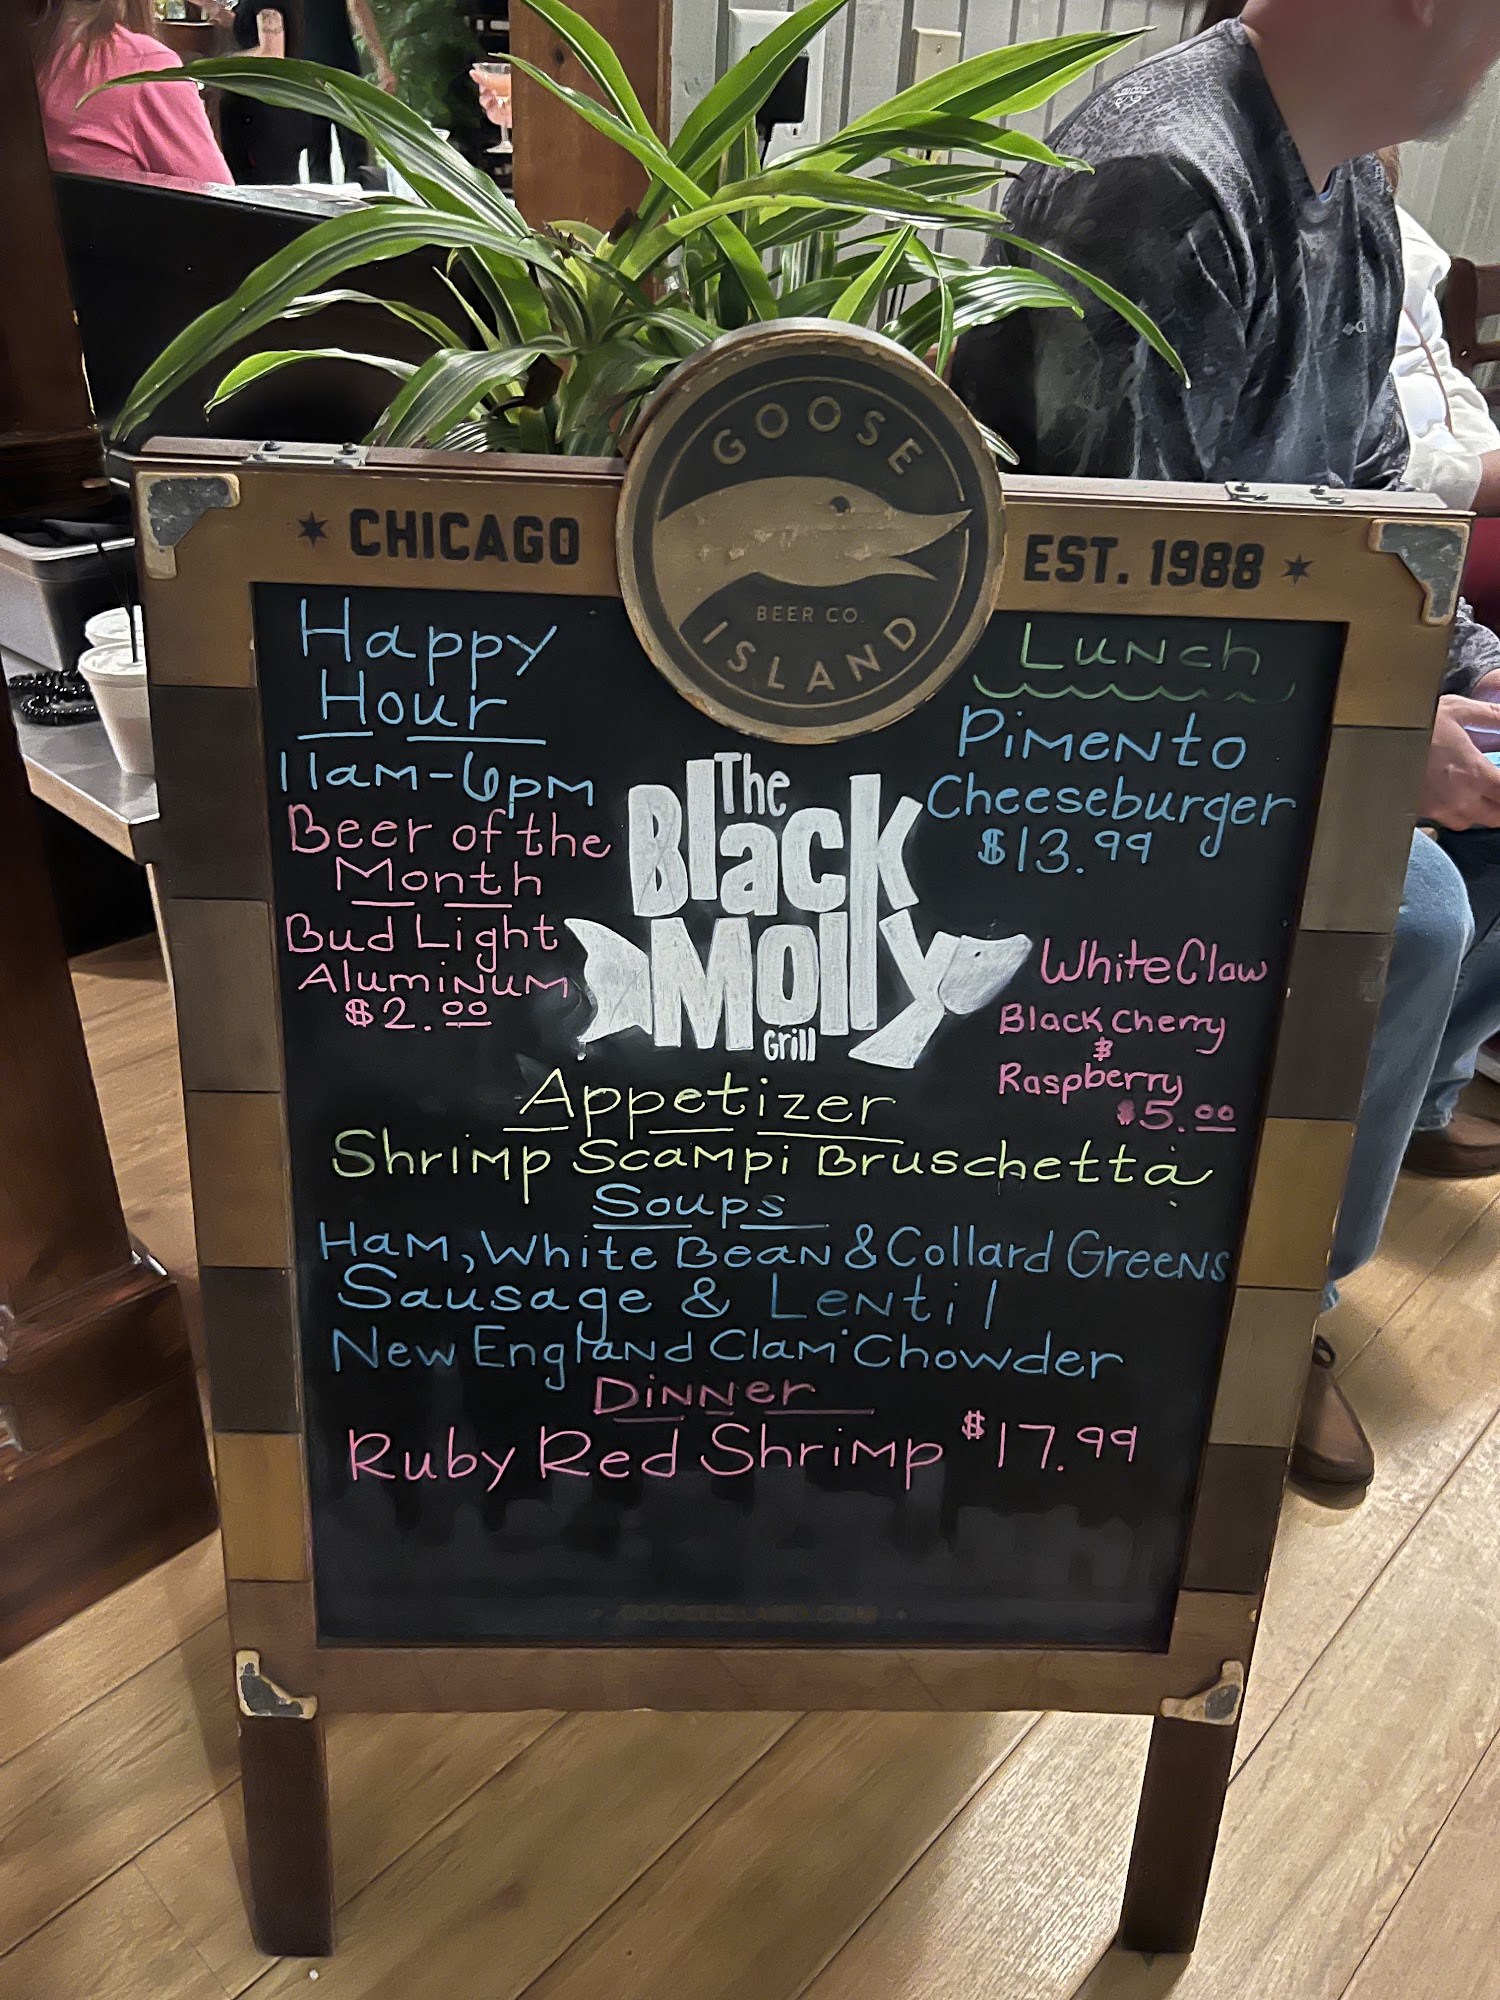 GOOSE
ISLAND
BEER CO.
CHICAGO
EST. 1988
Happy
Hour
11am-6pm
Beer of the
Month
Bud Light
Aluminum
$2.00
The
Black
Molly
Grill
Lunch
Pimento
Cheeseburger
$13.99
White Claw
Black Cherry
&
Raspberry
$5.00
Appetizer
Shrimp Scampi Bruschetta
Soups
Ham, White Bean & Collard Greens
Sausage & Lentil
New England Clam Chowder
Dinner
Ruby Red Shrimp $17.99
GOOSEISLAND.COM